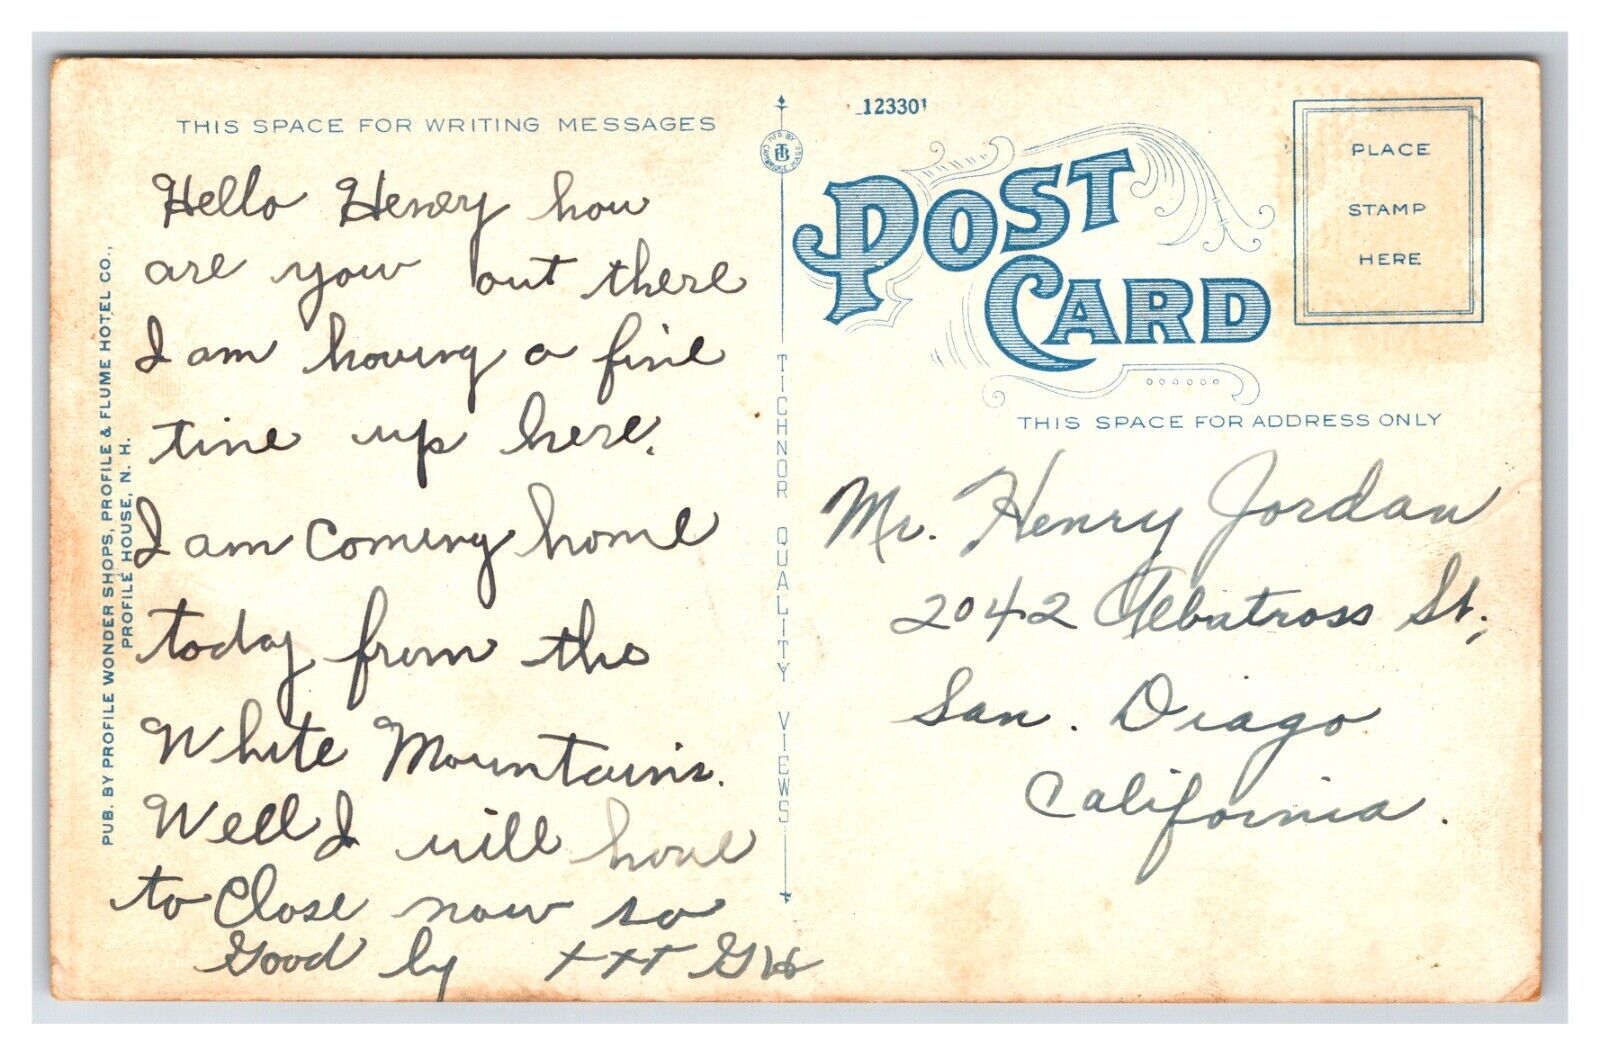 THIS SPACE FOR WRITING MESSAGES
Hello Henry how
are you out there
I am having a fine
time up here.
I am coming home
today from the
White Mountains.
Well I will have
to close now so
Good by +++ GW
PUB. BY PROFILE WONDER SHOPS, PROFILE & FLUME HOTEL CO.,
PROFILE HOUSE, N. H.
MFD BY
TB
CAMBRIDGE MASS.
TICHNOR QUALITY VIEWS
123301
POST
CARD
PLACE
STAMP
HERE
THIS SPACE FOR ADDRESS ONLY
Mr. Henry Jordan
2042 Albatross St.,
San. Diago
California.